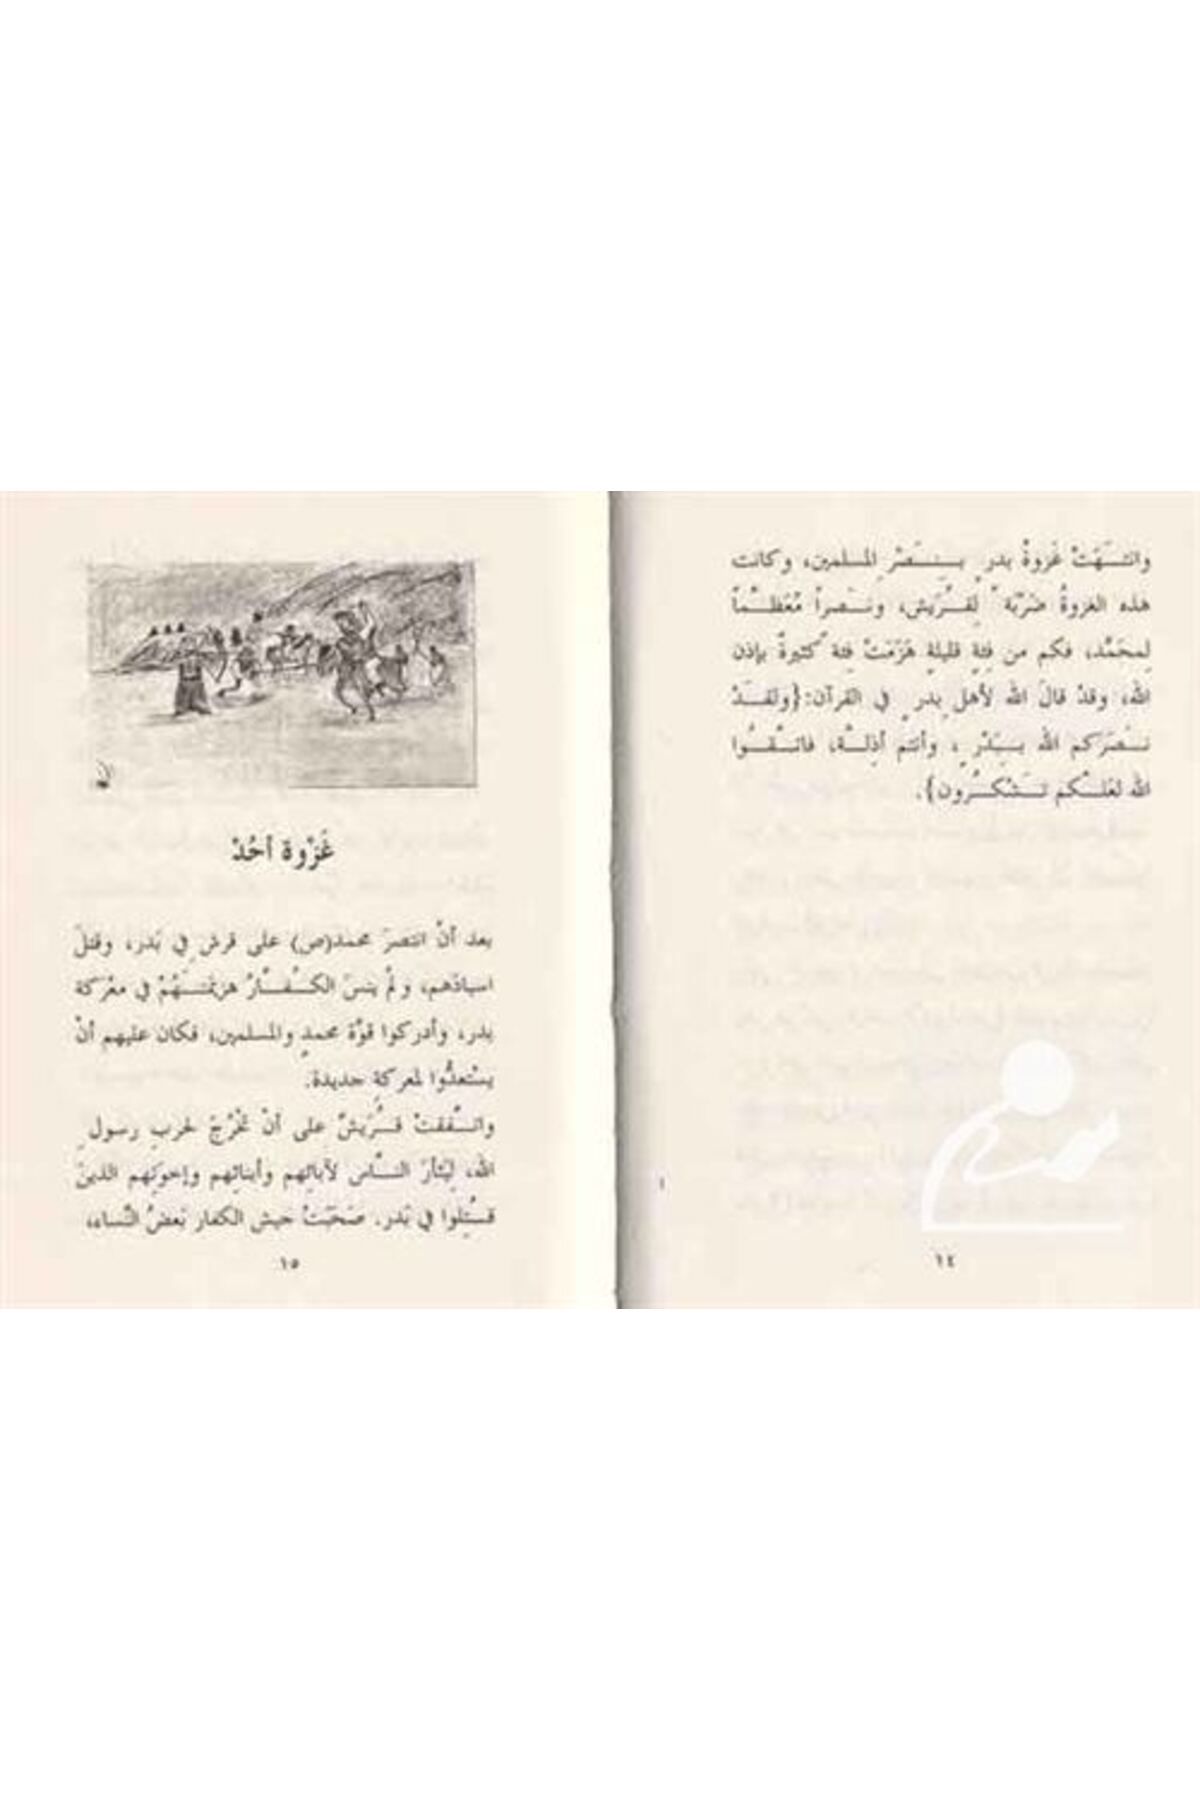 وانتَهَتْ غَزوةُ بدرٍ بِنَصْرِ المسلمين، وكانت
هذه الغزوةُ ضَرْبَةً لِقُرَيش، ونَصراً مُعَظَّماً
لِمحَمَّد، فكم من فِئةٍ قليلةٍ هَزَمَتْ فِئةً كثيرةً بإذن
الله، وقدْ قالَ الله لأهلِ بدرٍ في القرآن:{ولقَدْ
نَصَرَكم الله بِبَدْرٍ، وأنتم أذِلة، فاتَّقُوا
الله لعَلَّكم تَشْكُرون}.
١٤
غَزْوة أحُدْ
بعد أنْ انتصرَ محمد(ص) على قرش في بَدر، وقتلَ
اسيادَهم، ولمْ ينسَ الكُفَّارُ هزيمَتَهُمْ في معْركة
بدر، وأدركوا قوَّة محمدٍ والمسلمين، فكان عليهم أنْ
يسْتعدُّوا لمعركةٍ جديدة.
واتَّفقتْ قُرَيشٌ على أنْ تخْرُجَ لحربِ رسولِ
الله، لِيَثأرَ النَّاس لآبائِهم وأبنائِهم وإخوتِهم الذينَ
قُتِلوا في بَدر. صَحَبَتْ جيش الكفار بَعضُ النِّساء،
١٥